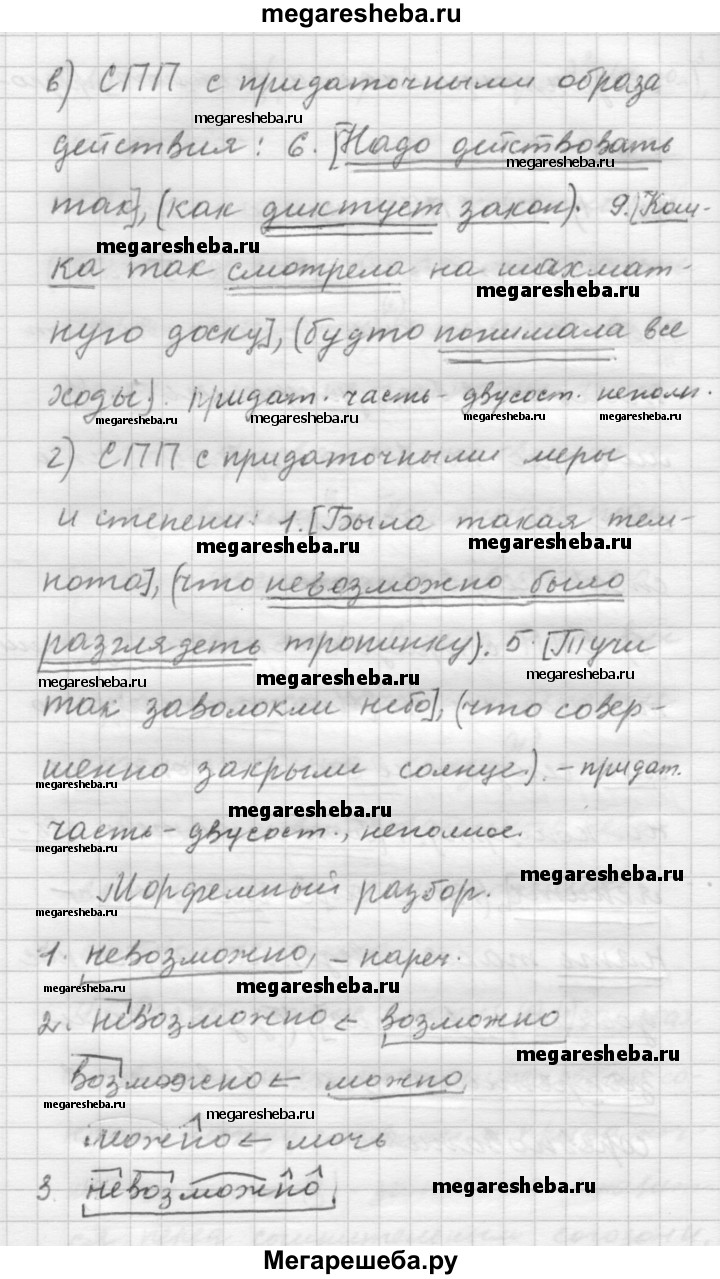 megaresheba.ru
в) СПП с придаточными образа
megaresheba.ru
действия: 6. [Надо действовать
megaresheba.ru
так], (как диктует закон). 9. [Кош-
megaresheba.ru
ка так смотрела на шахмат-
megaresheba.ru
ную доску], (будто понимала все
ходы). Придат. часть - двусост. неполн.
megaresheba.ru megaresheba.ru megaresheba.ru megaresheba.ru
г) СПП с придаточными меры
и степени: 1. [Была такая тем-
megaresheba.ru megaresheba.ru
нота], (что невозможно было
разглядеть тропинку). 5. [Тучи
megaresheba.ru megaresheba.ru megaresheba.ru
так заволокли небо], (что совер-
шенно закрыли солнце.) - придат.
megaresheba.ru
megaresheba.ru
часть - двусост., неполное.
megaresheba.ru
megaresheba.ru
Морфемный разбор.
megaresheba.ru
1. невозможно, - нареч.
megaresheba.ru megaresheba.ru
2. невозможно ← возможно
megaresheba.ru
возможно ← можно
megaresheba.ru megaresheba.ru
можно ← мочь
3. невозможно
megaresheba.ru
Мегарешеба.ру